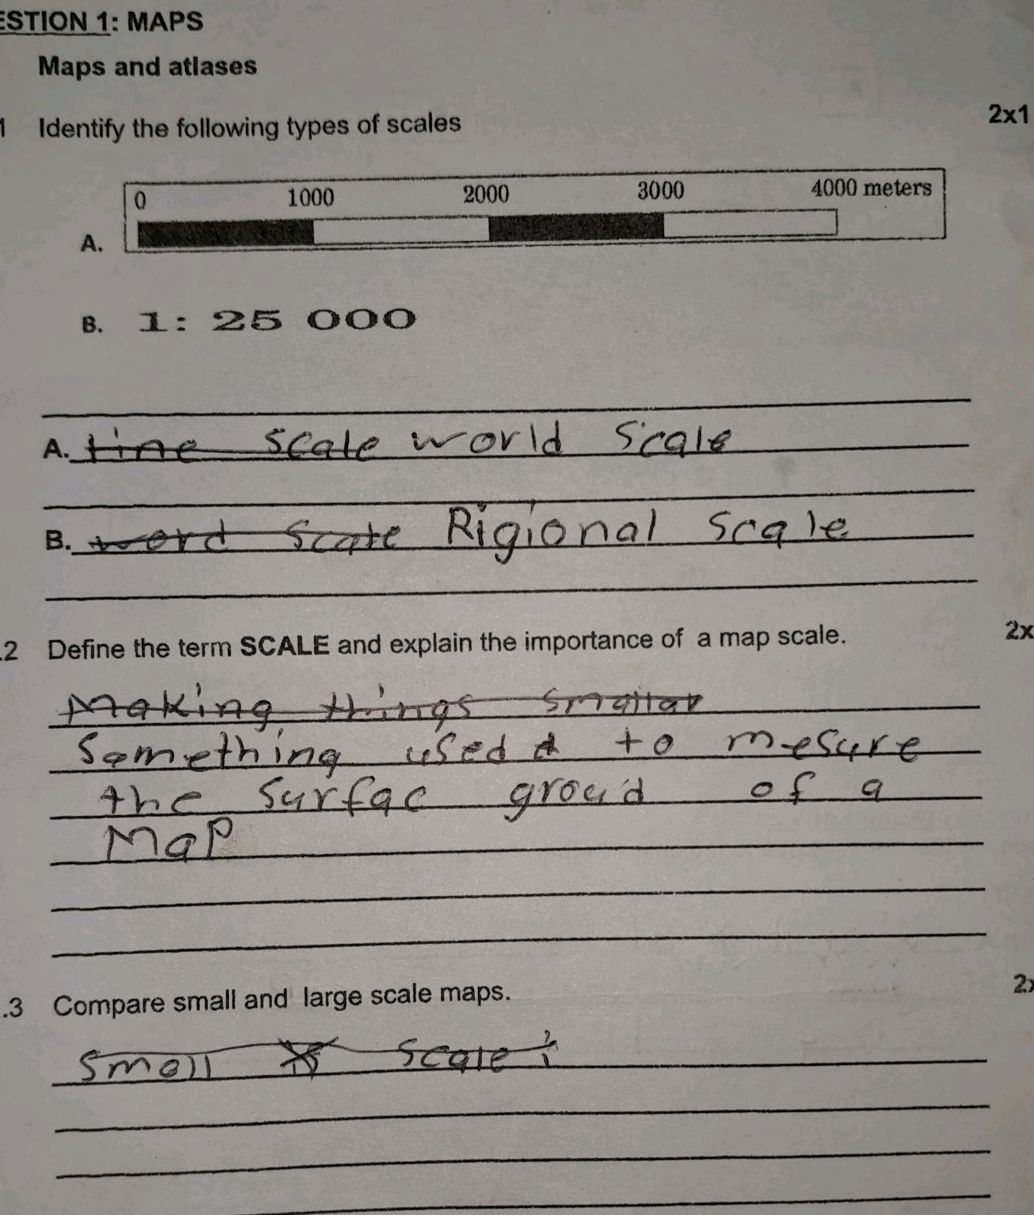 ESTION 1: MAPS
Maps and atlases
1 Identify the following types of scales 2x1
0 1000 2000 3000 4000 meters
A.
B. 1: 25 000
A. line scale world Scale
B. word Scale Rigional Scale
.2 Define the term SCALE and explain the importance of a map scale. 2x
Making things smaller
Something used to mesure
the surfac groud of a
MaP
.3 Compare small and large scale maps. 2x
Small scale